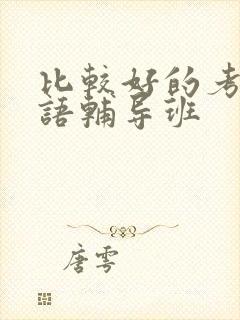 比較好的考
語輔导班
唐雩